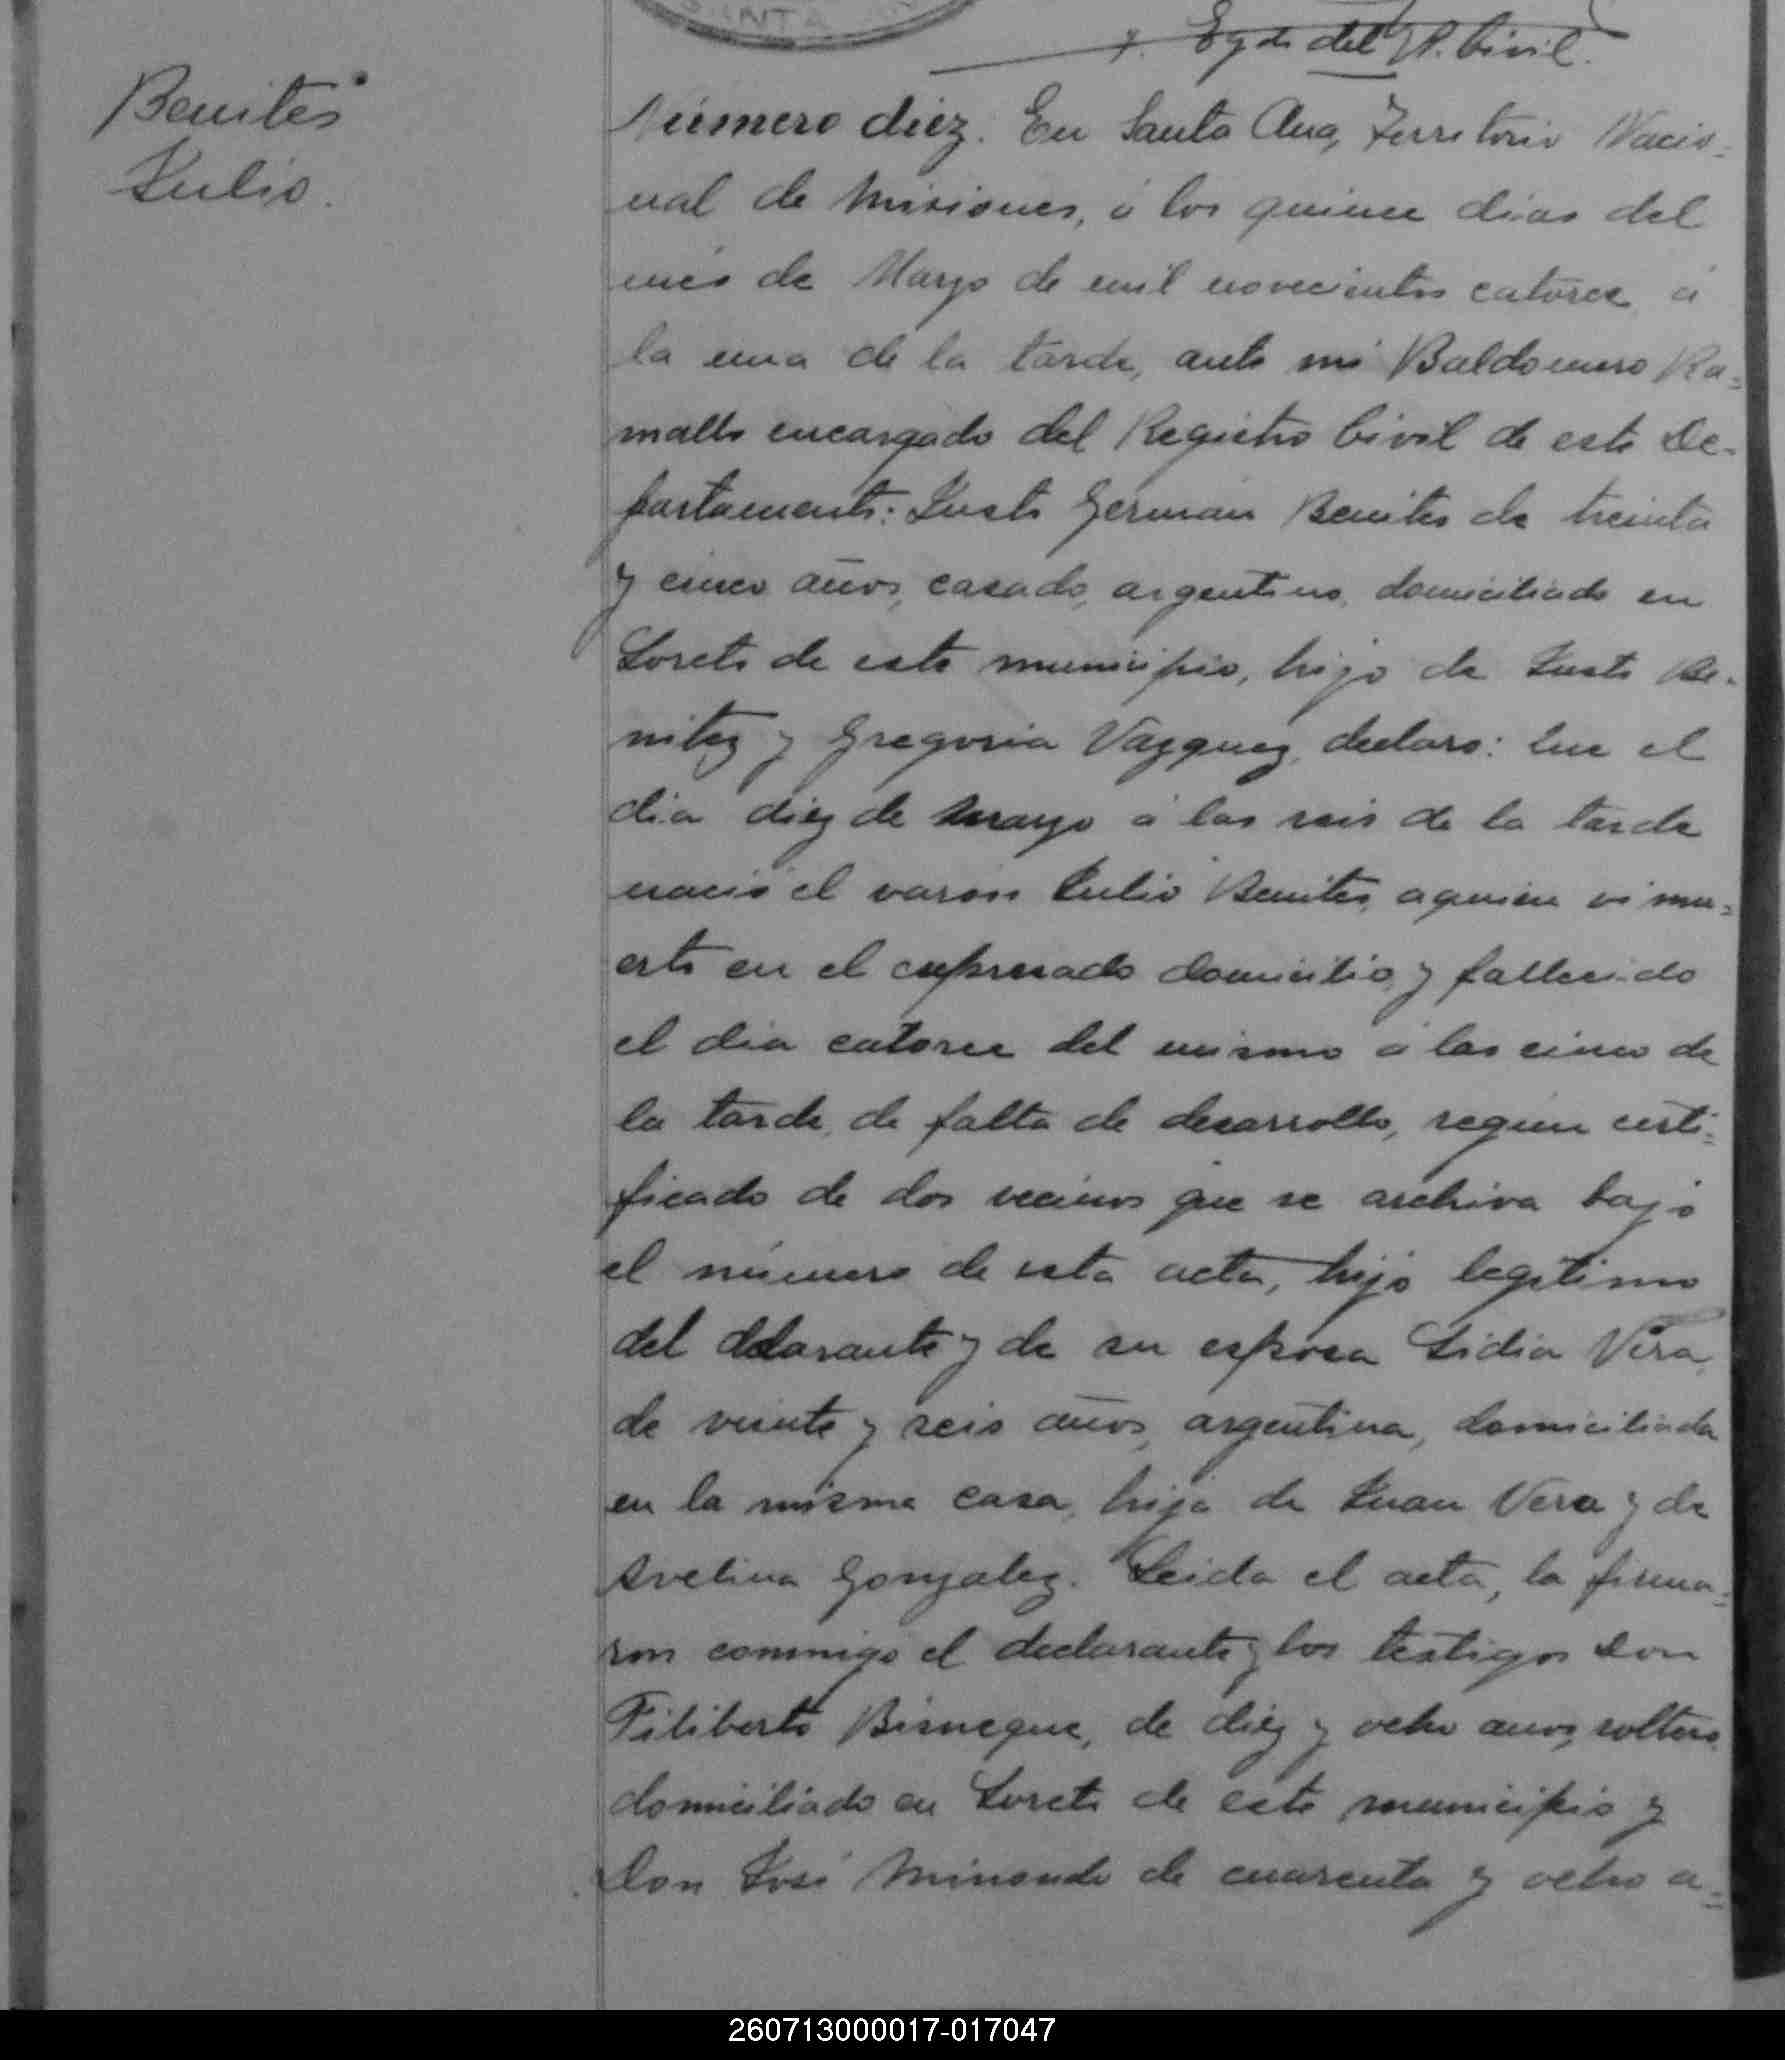 SANTA
Egdo del R. Civil.
Benites
Julio.
Número diez. En Santa Ana, Territorio Nacio-
nal de Misiones, á los quince dias del
mes de Mayo de mil novecientos catorce á
la una de la tarde, ante mi Baldomero Ra-
mallo encargado del Registro Civil de este De-
partamento: Justo German Benites de treinta
y cinco años, casado, argentino, domiciliado en
Loreto de este municipio, hijo de Justo Be-
nitez y Gregoria Vazquez, declaró: Que el
dia diez de mayo á las seis de la tarde
nació el varon Julio Benites, a quien vi mu-
erto en el expresado domicilio, y fallecido
el dia catorce del mismo á las cinco de
la tarde, de falta de desarrollo, segun certi-
ficado de dos vecinos que se archiva bajo
el número de esta acta, hijo legítimo
del declarante y de su esposa Lidia Vera,
de veinte y seis años, argentina, domiciliada
en la misma casa, hija de Juan Vera y de
Avelina Gonzalez. Leida el acta, la firma-
ron conmigo el declarante y los testigos Don
Filiberto Bisneque, de diez y ocho anos, soltero
domiciliado en Loreto de este municipio y
Don José Minondo de cuarenta y ocho a-
260713000017-017047